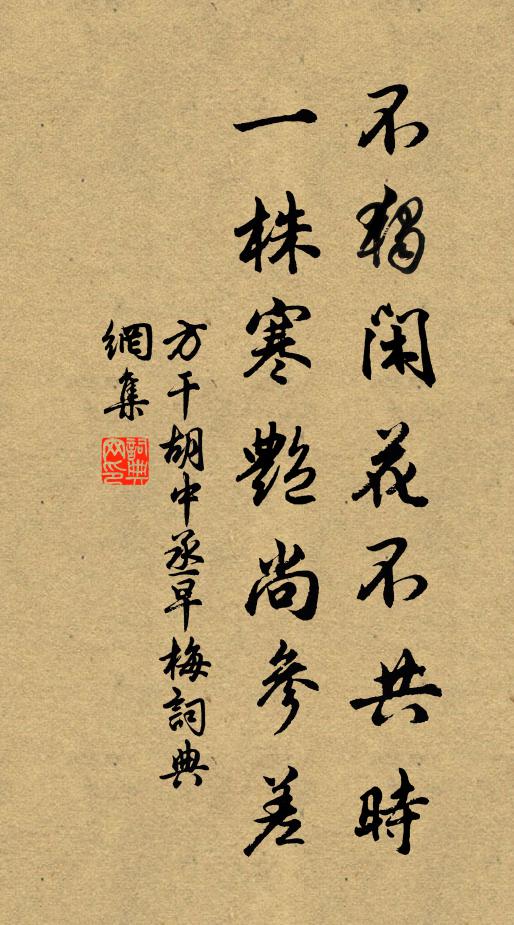 不獨閑花不共時
一株寒艷尚參差
方干胡中丞早梅詞典
網集
詞典
网印